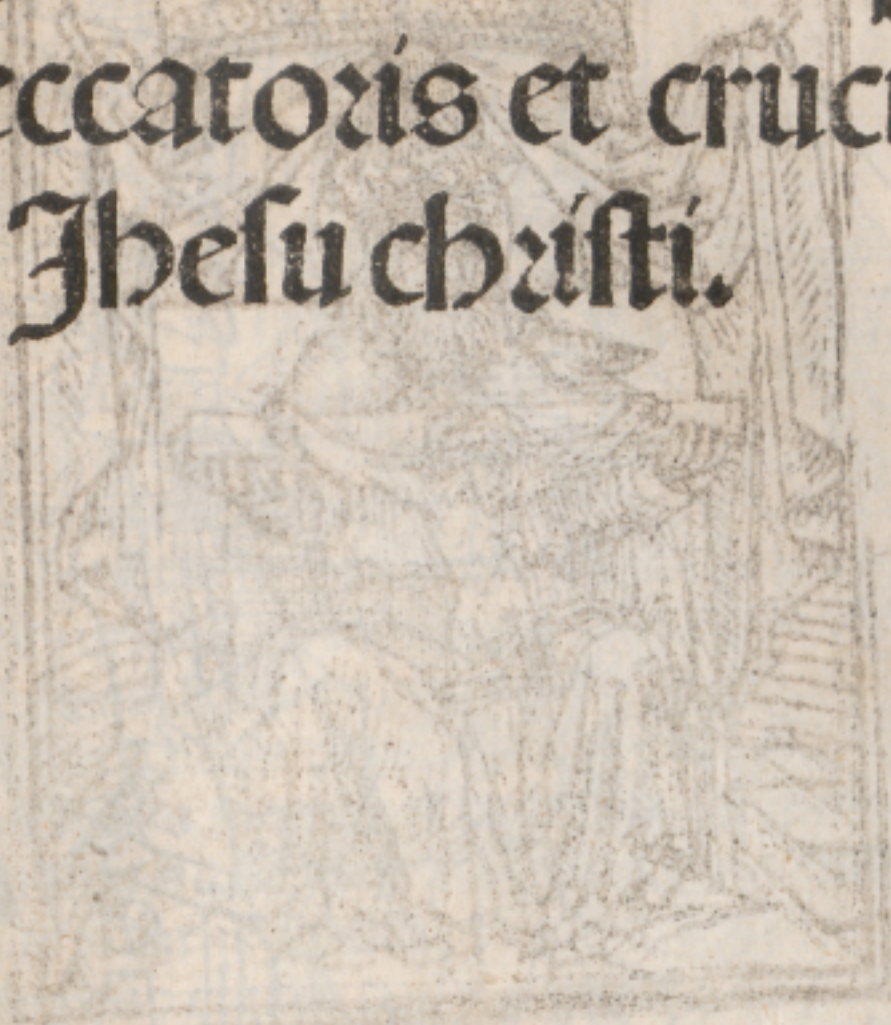 eccatoris et cruci
Jhesu christi.